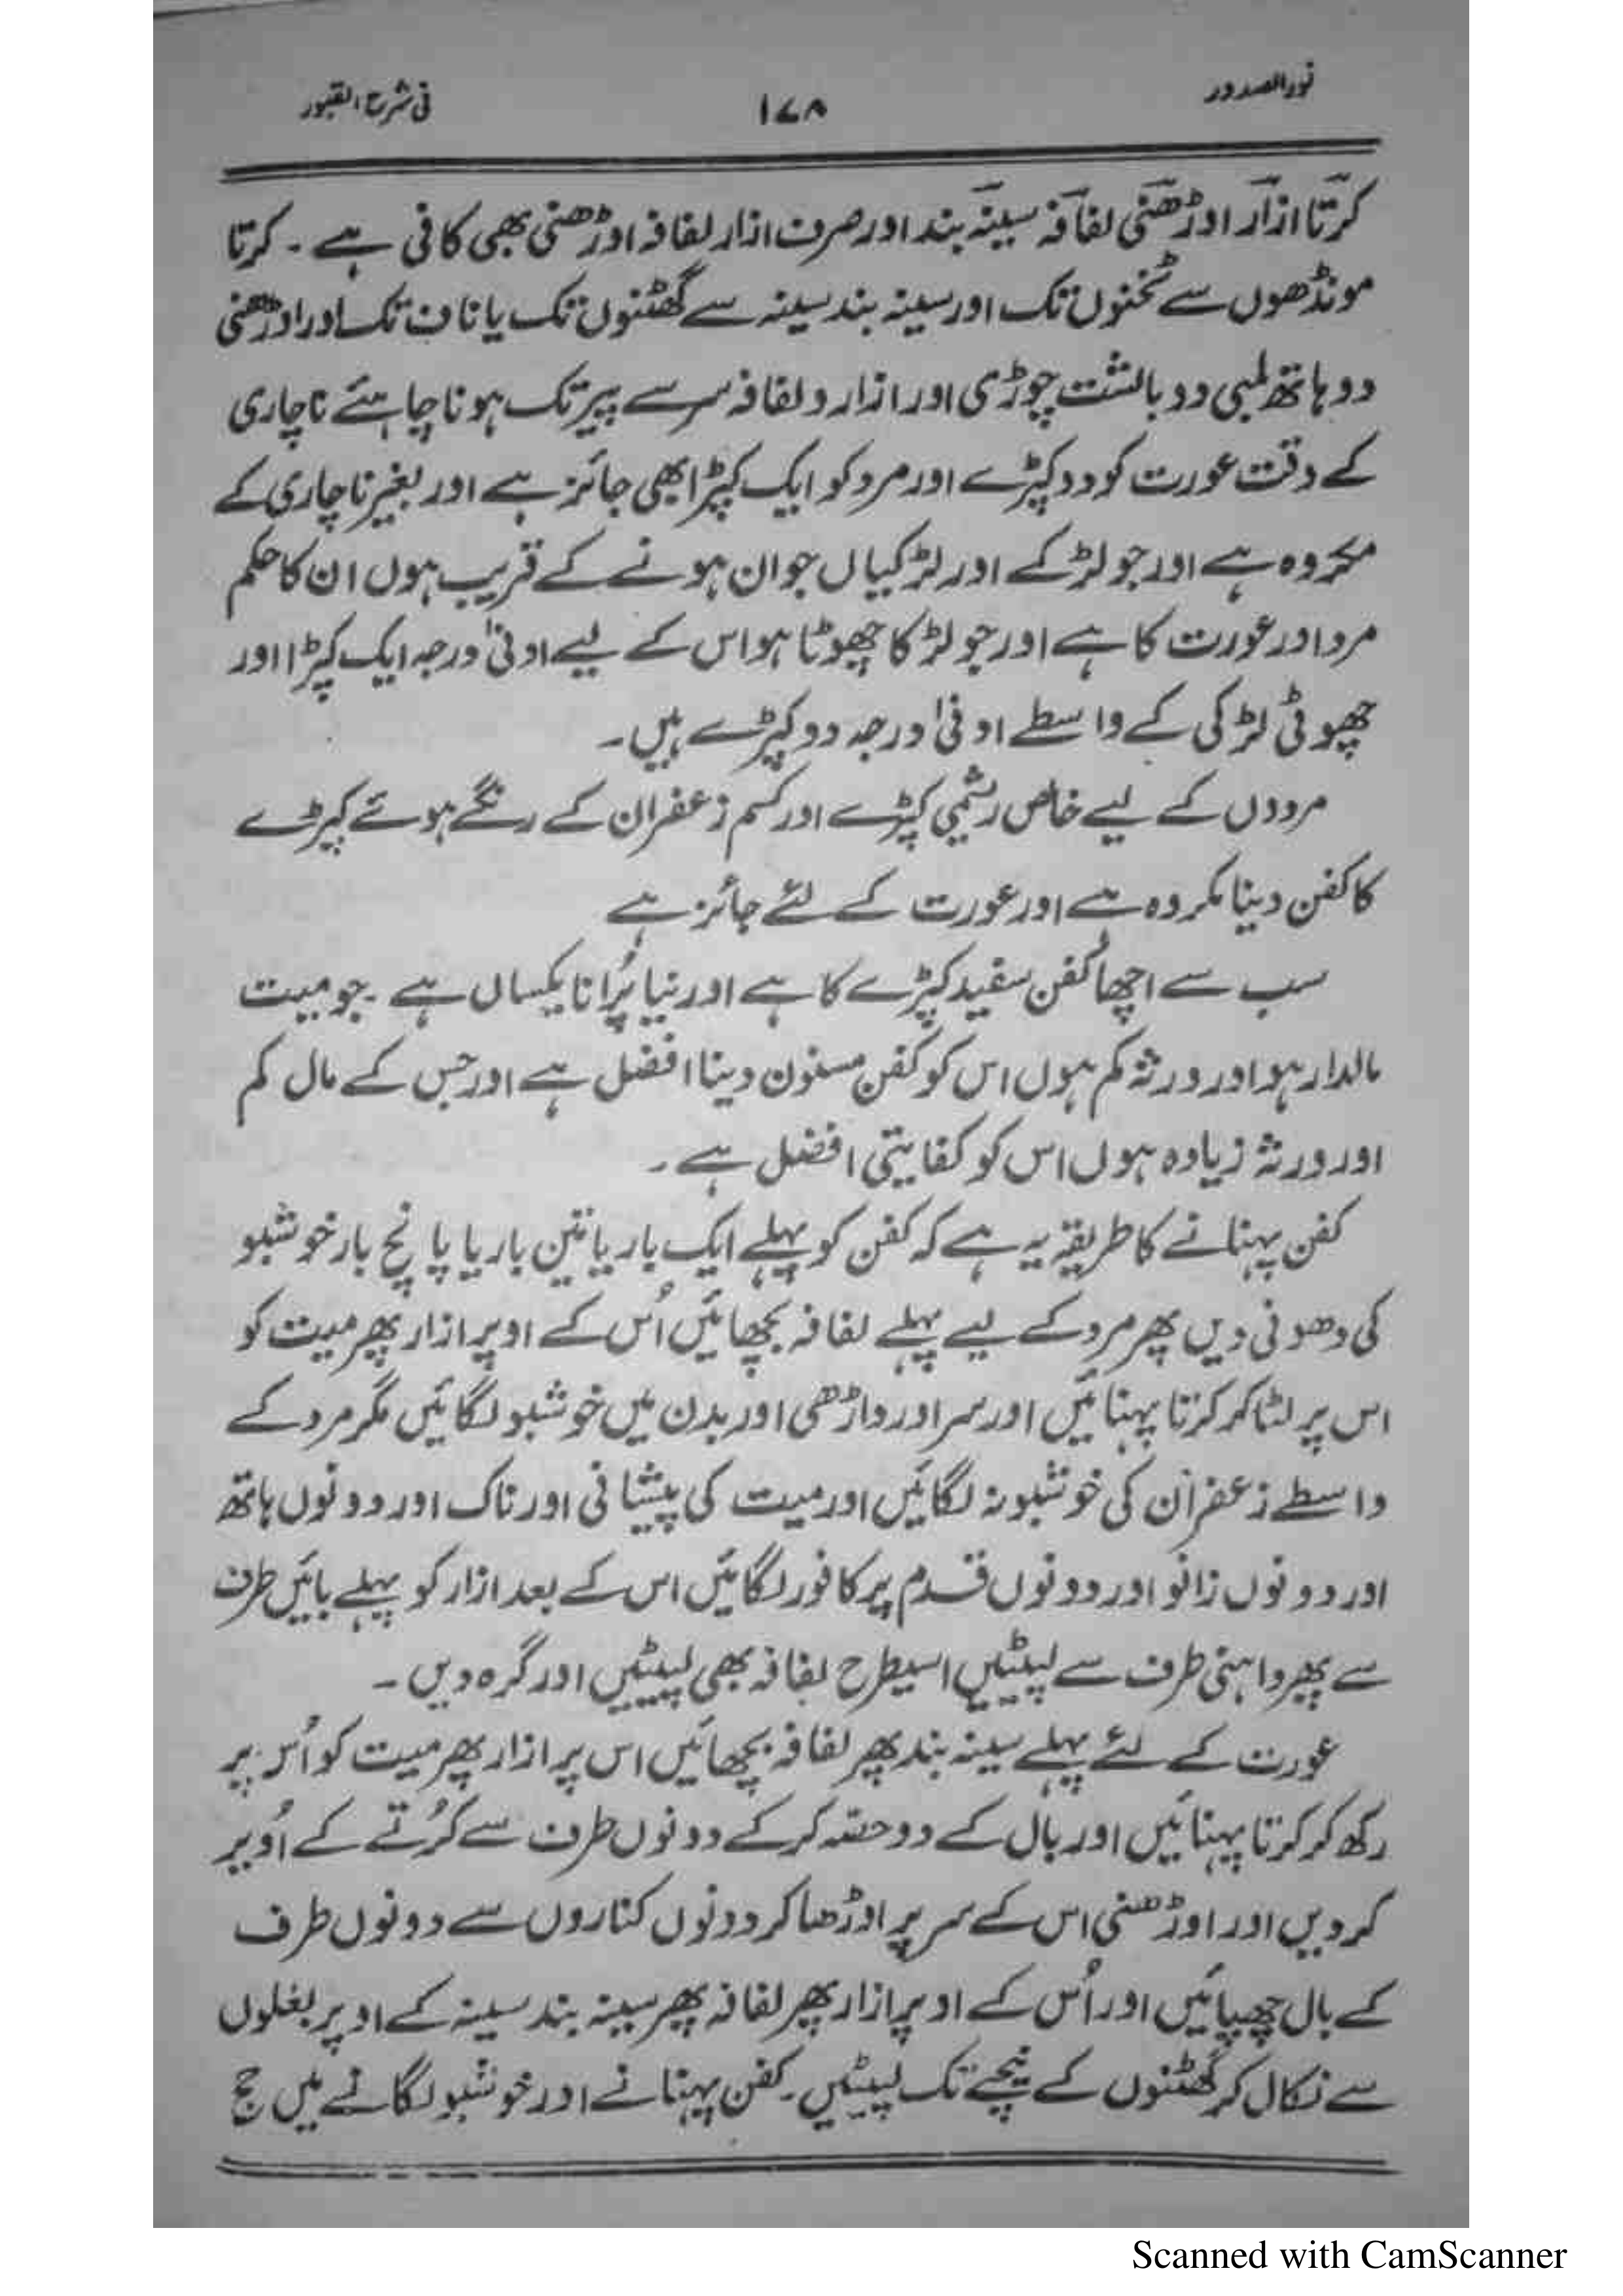 نور الصدور ۱۷۸ فی شرح القبور
کرتا ازار اوڑھنی لفافہ سینہ بند اور صرف ازار لفافہ اوڑھنی بھی کافی ہے ۔ کرتا
مونڈھوں سے ٹخنوں تک اور سینہ بند سینہ سے گھٹنوں تک یا ناف تک اور اوڑھنی
دو ہاتھ لمبی دو بالشت چوڑی اور ازار و لفافہ سر سے پیر تک ہونا چاہئے ناچاری
کے وقت عورت کو دو کپڑے اور مرد کو ایک کپڑا بھی جائز ہے اور بغیر ناچاری کے
مکروہ ہے اور جو لڑکے اور لڑکیاں جوان ہونے کے قریب ہوں ان کا حکم
مرد اور عورت کا ہے اور جو لڑکا چھوٹا ہو اس کے لیے ادنیٰ درجہ ایک کپڑا اور
چھوٹی لڑکی کے واسطے ادنیٰ درجہ دو کپڑے ہیں۔
مردوں کے لیے خاص ریشمی کپڑے اور کسم زعفران کے رنگے ہوئے کپڑے
کا کفن دینا مکروہ ہے اور عورت کے لئے جائز ہے
سب سے اچھا کفن سفید کپڑے کا ہے اور نیا پُرانا یکساں ہے ۔ جو میت
مالدار ہو اور ورثہ کم ہوں اس کو کفن مسنون دینا افضل ہے اور جس کے مال کم
اور ورثہ زیادہ ہوں اس کو کفایتی افضل ہے ۔
کفن پہنانے کا طریقہ یہ ہے کہ کفن کو پہلے ایک بار یا تین بار یا پانچ بار خوشبو
کی دھونی دیں پھر مرد کے لیے پہلے لفافہ بچھائیں اُس کے اوپر ازار پھر میت کو
اس پر لٹا کر کرتا پہنائیں اور سر اور داڑھی اور بدن میں خوشبو لگائیں مگر مرد کے
واسطے زعفران کی خوشبو نہ لگائیں اور میت کی پیشانی اور ناک اور دونوں ہاتھ
اور دونوں زانو اور دونوں قدم پر کافور لگائیں اس کے بعد ازار کو پہلے بائیں طرف
سے پھر داہنی طرف سے لپیٹیں اسیطرح لفافہ بھی لپیٹیں اور گرہ دیں ۔
عورت کے لئے پہلے سینہ بند پھر لفافہ بچھائیں اس پر ازار پھر میت کو اُس پر
رکھ کر کرتا پہنائیں اور بال کے دو حصّہ کرکے دونوں طرف سے کُرتے کے اُوپر
کر دیں اور اوڑھنی اس کے سر پر اوڑھا کر دونوں کناروں سے دونوں طرف
کے بال چھپائیں اور اُس کے اوپر ازار پھر لفافہ پھر سینہ بند سینہ کے اوپر بغلوں
سے نکال کر گھٹنوں کے نیچے تک لپیٹیں ۔ کفن پہنانے اور خوشبو لگانے میں حج
Scanned with CamScanner